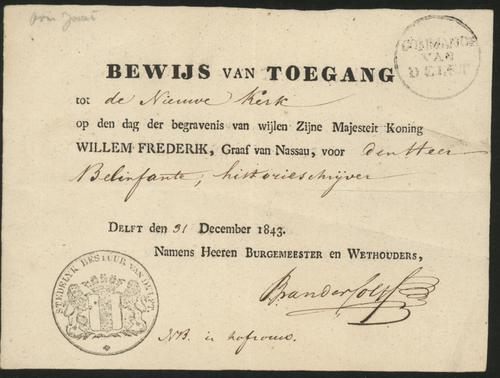 COMMANDO
VAN
DELFT
BEWIJS VAN TOEGANG
tot de Nieuwe Kerk
op den dag der begravenis van wijlen Zijne Majesteit Koning
WILLEM FREDERIK, Graaf van Nassau, voor den Heer
Belinfante, historieschrijver
DELFT den 31 December 1843.
Namens Heeren BURGEMEESTER en WETHOUDERS,
STEDELYK BESTUUR VAN DELFT
NB. is hofrouw.